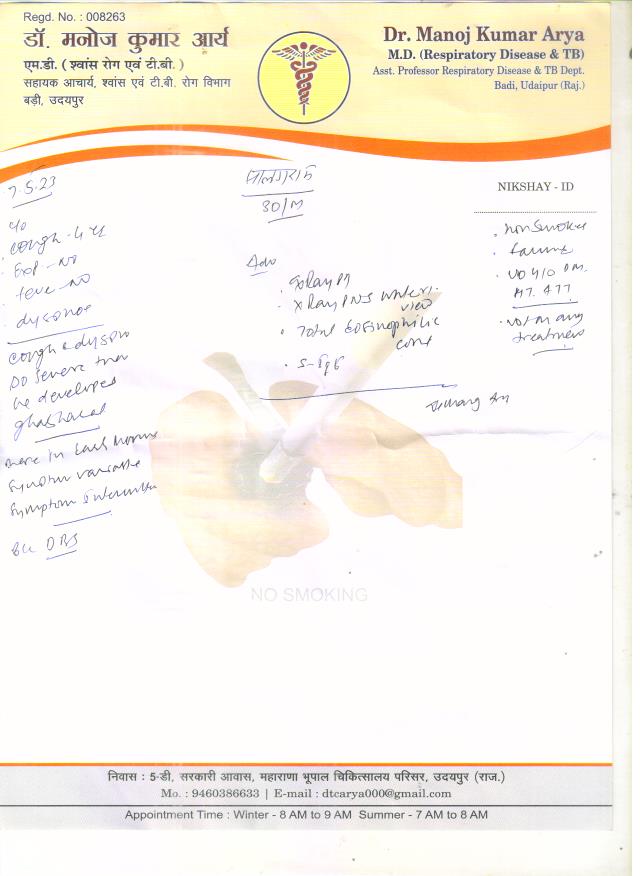 Regd. No. : 008263
डॉ. मनोज कुमार आर्य
एम.डी. ( श्वांस रोग एवं टी.बी. )
सहायक आचार्य, श्वांस एवं टी.बी. रोग विभाग
बड़ी, उदयपुर
Dr. Manoj Kumar Arya
M.D. (Respiratory Disease & TB)
Asst. Professor Respiratory Disease & TB Dept.
Badi, Udaipur (Raj.)
7.5.23
c/o
cough - 4 yr
Exp - no
feve - no
dyspnoe
cough & dyspno
so severe that
he developes
ghabharat
more in early morn
symptom variable
symptom
30/M
Adv
X Ray PNS water.
view
Total Eosinophilic
count
S-IgE
NIKSHAY - ID
non smoker
farmer
no h/o DM.
HT. ATT
not on any
treatment
NO SMOKING
निवास : 5-डी, सरकारी आवास, महाराणा भूपाल चिकित्सालय परिसर, उदयपुर (राज.)
Mo. : 9460386633 | E-mail : dtcarya000@gmail.com
Appointment Time : Winter - 8 AM to 9 AM Summer - 7 AM to 8 AM